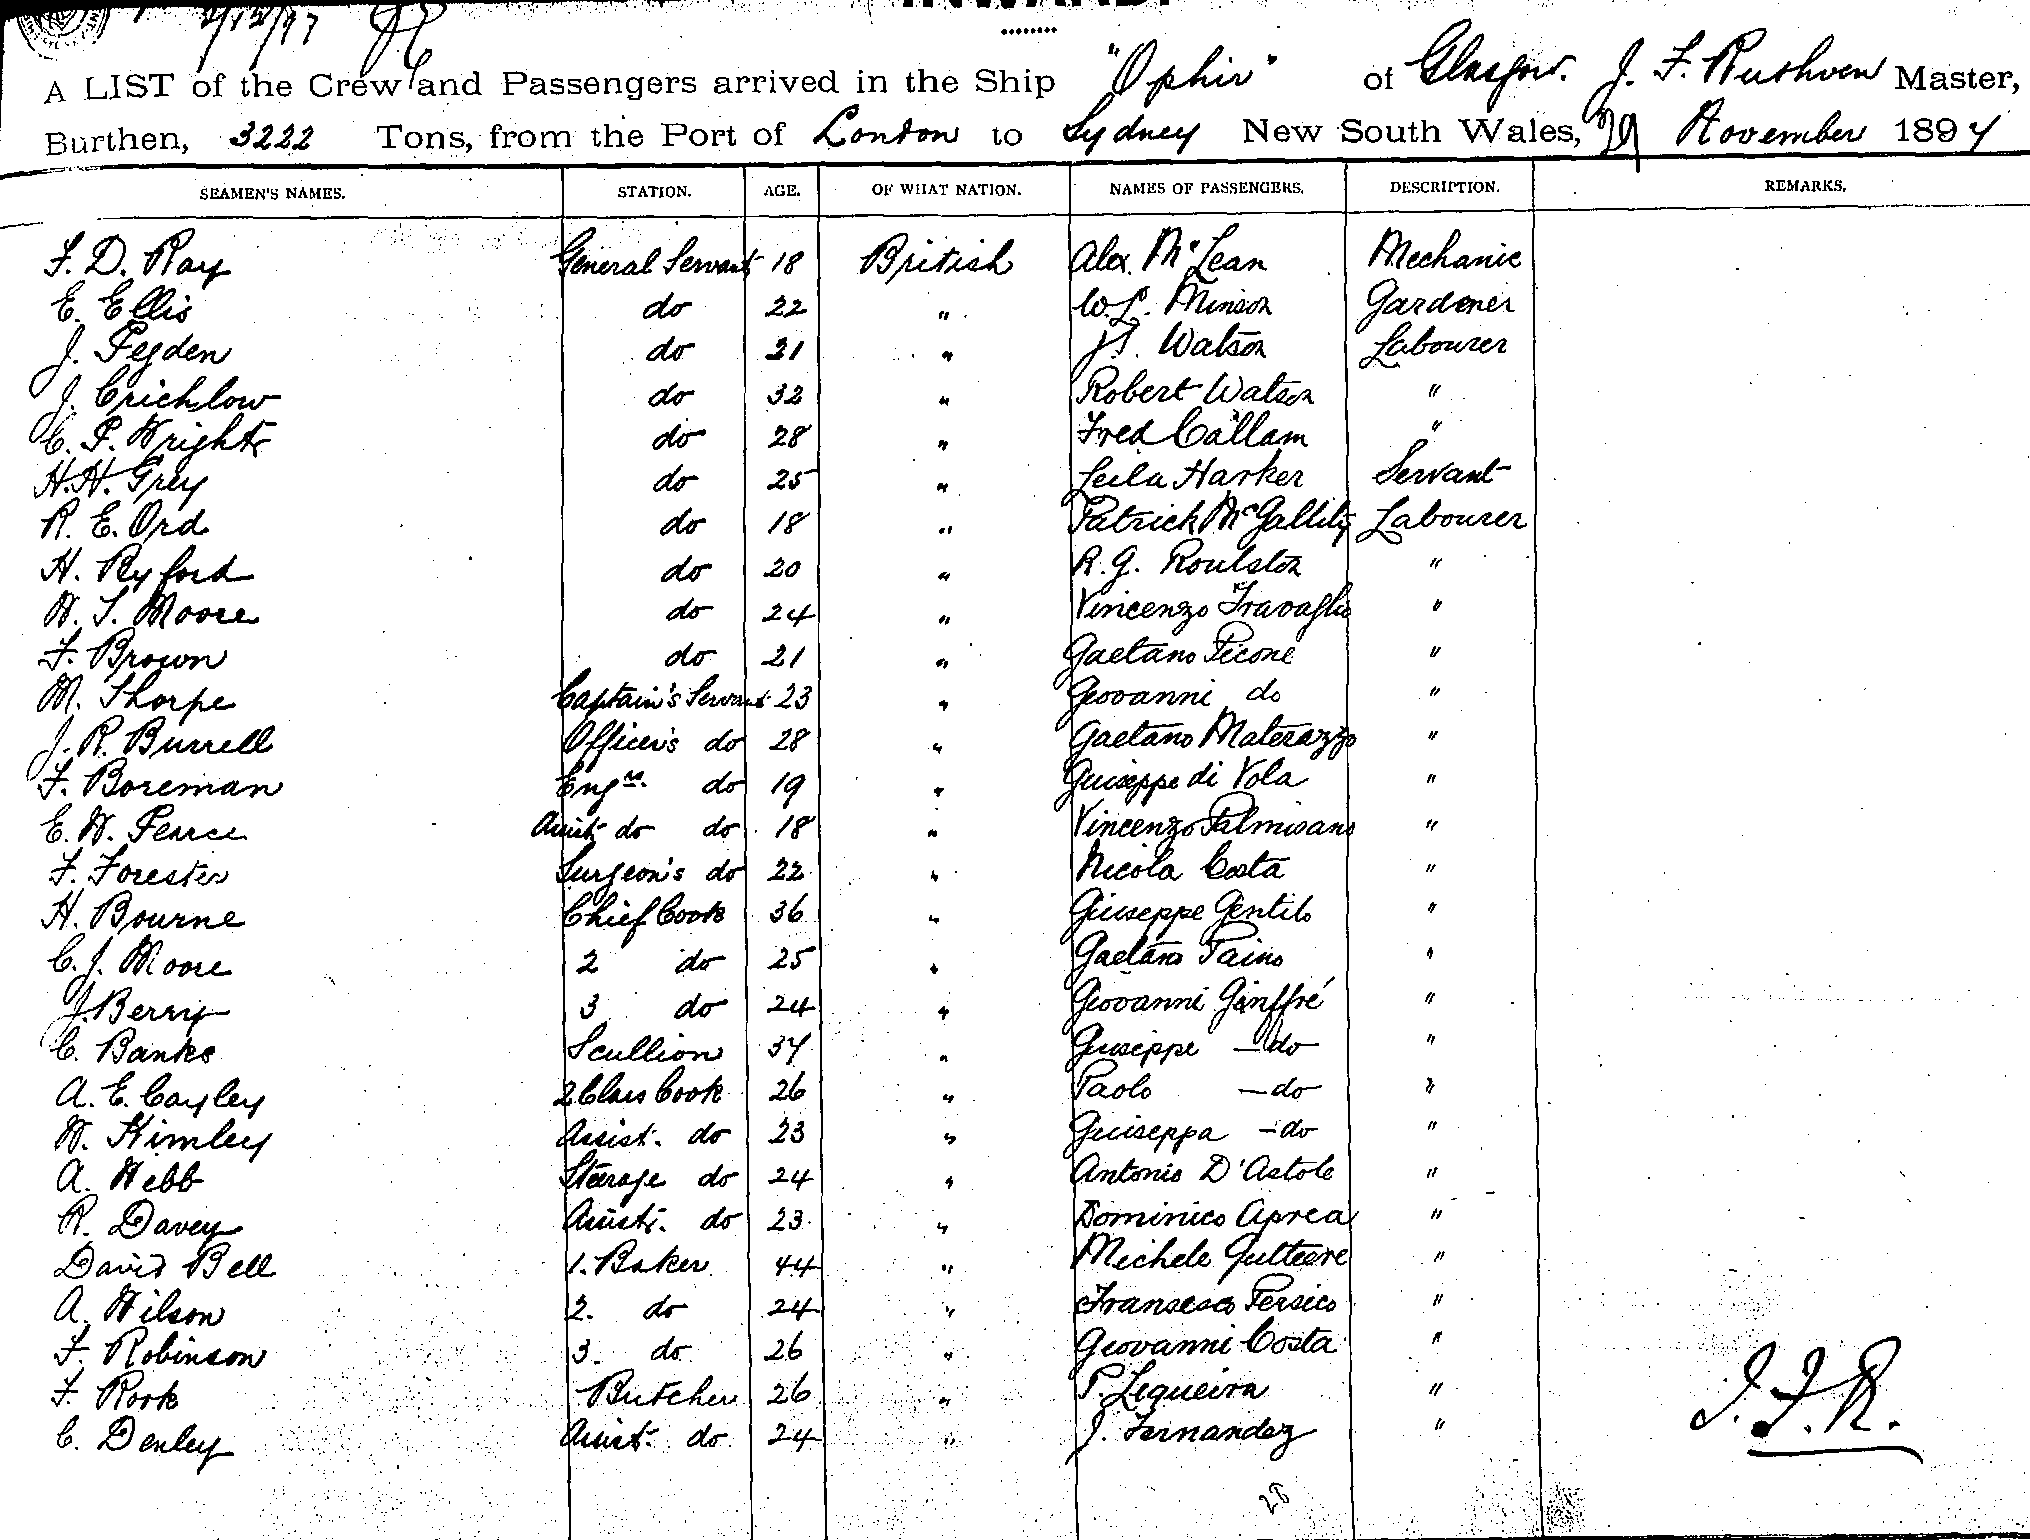 INWARD.
2/12/97
A LIST of the Crew and Passengers arrived in the Ship "Ophir" of Glasgow. J. F. Ruthven Master,
Burthen, 3222 Tons, from the Port of London to Sydney New South Wales, November 1897
SEAMEN'S NAMES. STATION. AGE. OF WHAT NATION. NAMES OF PASSENGERS. DESCRIPTION. REMARKS.
F. D. Ray General Servant 18 British Alex. McLean Mechanic
E. Ellis do 22 " W. L. Minson Gardener
J. Pegden do 21 " J. S. Watson Labourer
J. Crichlow do 32 " Robert Watson "
C. P. Wright do 28 " Fred Callam "
H. H. Grey do 25 " Leila Harker Servant
R. E. Ord do 18 " Patrick McGallily Labourer
H. Ryford do 20 " R. G. Roulston "
W. S. Moore do 24 " Vincenzo Travaglio "
F. Brown do 21 " Gaetano Picone "
M. Thorpe Captain's Servant 23 " Geovanni do "
J. R. Burrell Officer's do 28 " Gaetano Materazzo "
F. Boreman Engrs. do 19 " Guiseppe di Vola "
E. W. Pearce Assist do do 18 " Vincenzo Palmisano "
F. Forester Surgeon's do 22 " Nicola Costa "
H. Bourne Chief Cook 36 " Giuseppe Gentilo "
C. J. Moore 2 do 25 " Gaetano Taino "
J. Berry 3 do 24 " Giovanni Ginffré "
C. Banks Scullion 37 " Guiseppe - do "
A. E. Cayley 2 Class Cook 26 " Paolo - do "
W. Kimley Assist. do 23 " Guiseppa - do "
A. Webb Steerage do 24 " Antonio D'Astole "
R. Davey Assist. do 23 " Dominico Aprea "
David Bell 1. Baker 44 " Michele "
A. Wilson 2. do 24 " Fransesco Persico "
F. Robinson 3. do 26 " Geovanni Costa "
F. Rook Butcher 26 " P. Lequeira "
C. Denley Assist. do 24 " J. Fernandez "
28
J. F. R.